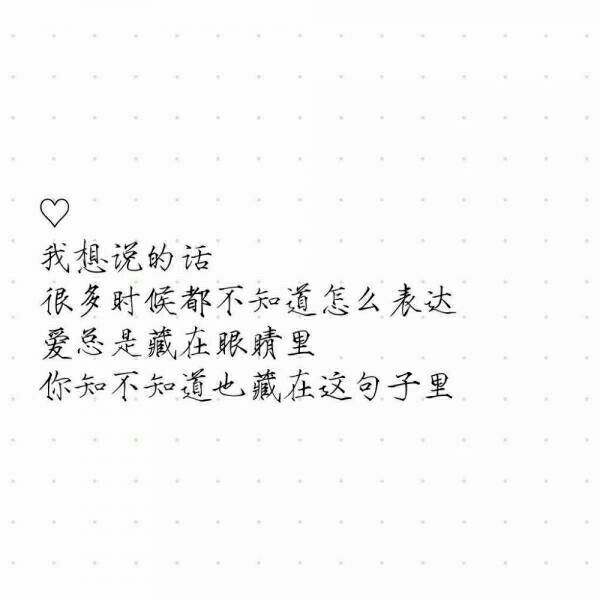 ♡
我想说的话
很多时候都不知道怎么表达
爱总是藏在眼睛里
你知不知道也藏在这句子里